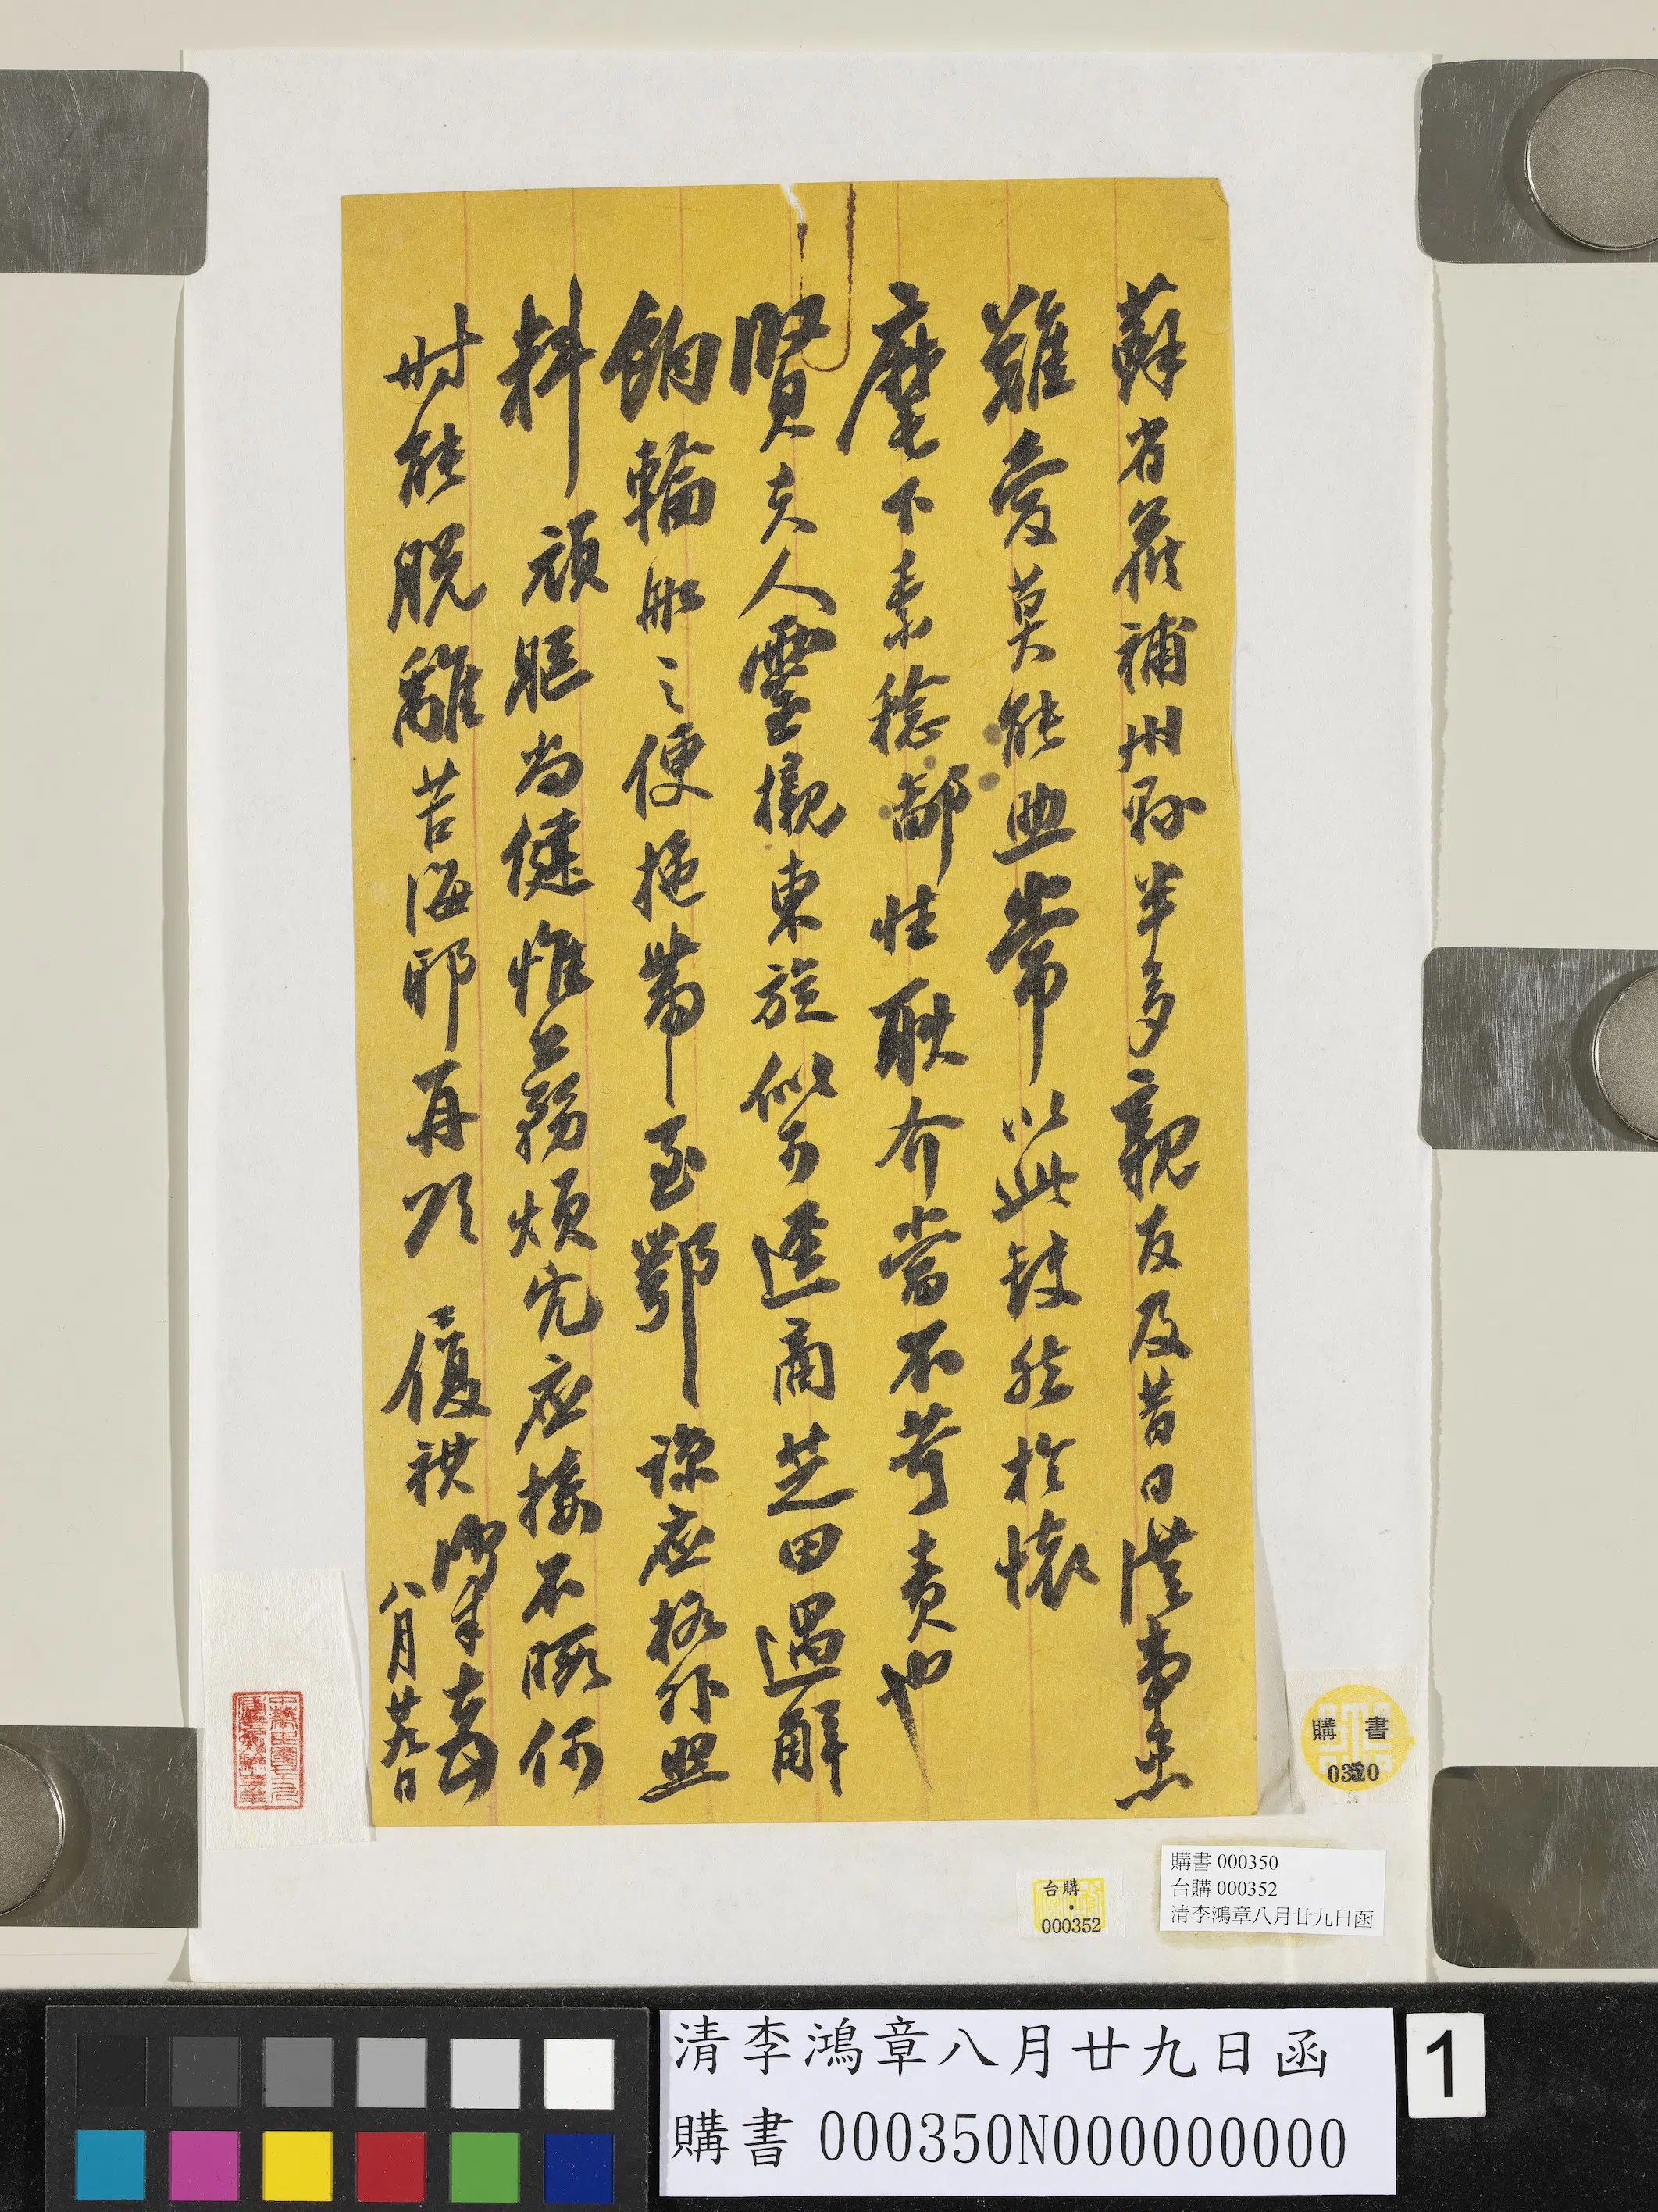 蘇省候補州縣半多親友及昔日從事出
難愛莫能助常以此歉然於懷
麾下素稔鄙性耿介當不苛責也
賢夫人靈櫬東旋似可逕商芝田遇解
餉輪船之便拖帶至鄂諒應格外照
料頑軀尚健惟公務煩冗應接不暇何
時能脫離苦海耶再頌 儷祺 鴻章又頓
八月廿九日
購書
0350
台購
000352
購書 000350
台購 000352
清李鴻章八月廿九日函
清李鴻章八月廿九日函
購書 000350N000000000
1